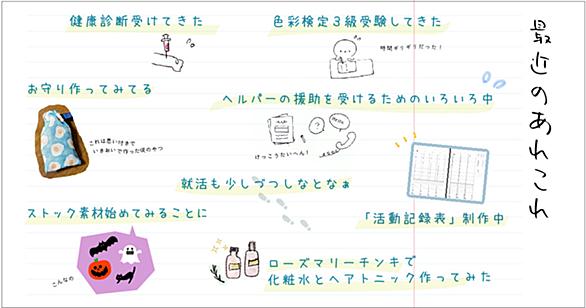 最近のあれこれ
健康診断受けてきた
色彩検定3級受験してきた
時間ギリギリだった!
お守り作ってみてる
これは思い付きで
いきおいで作った俺のやつ
ヘルパーの援助を受けるためのいろいろ中
けっこうたいへん!
就活も少しづつしなとなぁ
「活動記録表」制作中
ストック素材始めてみることに
こんなの
ローズマリーチンキで
化粧水とヘアトニック作ってみた